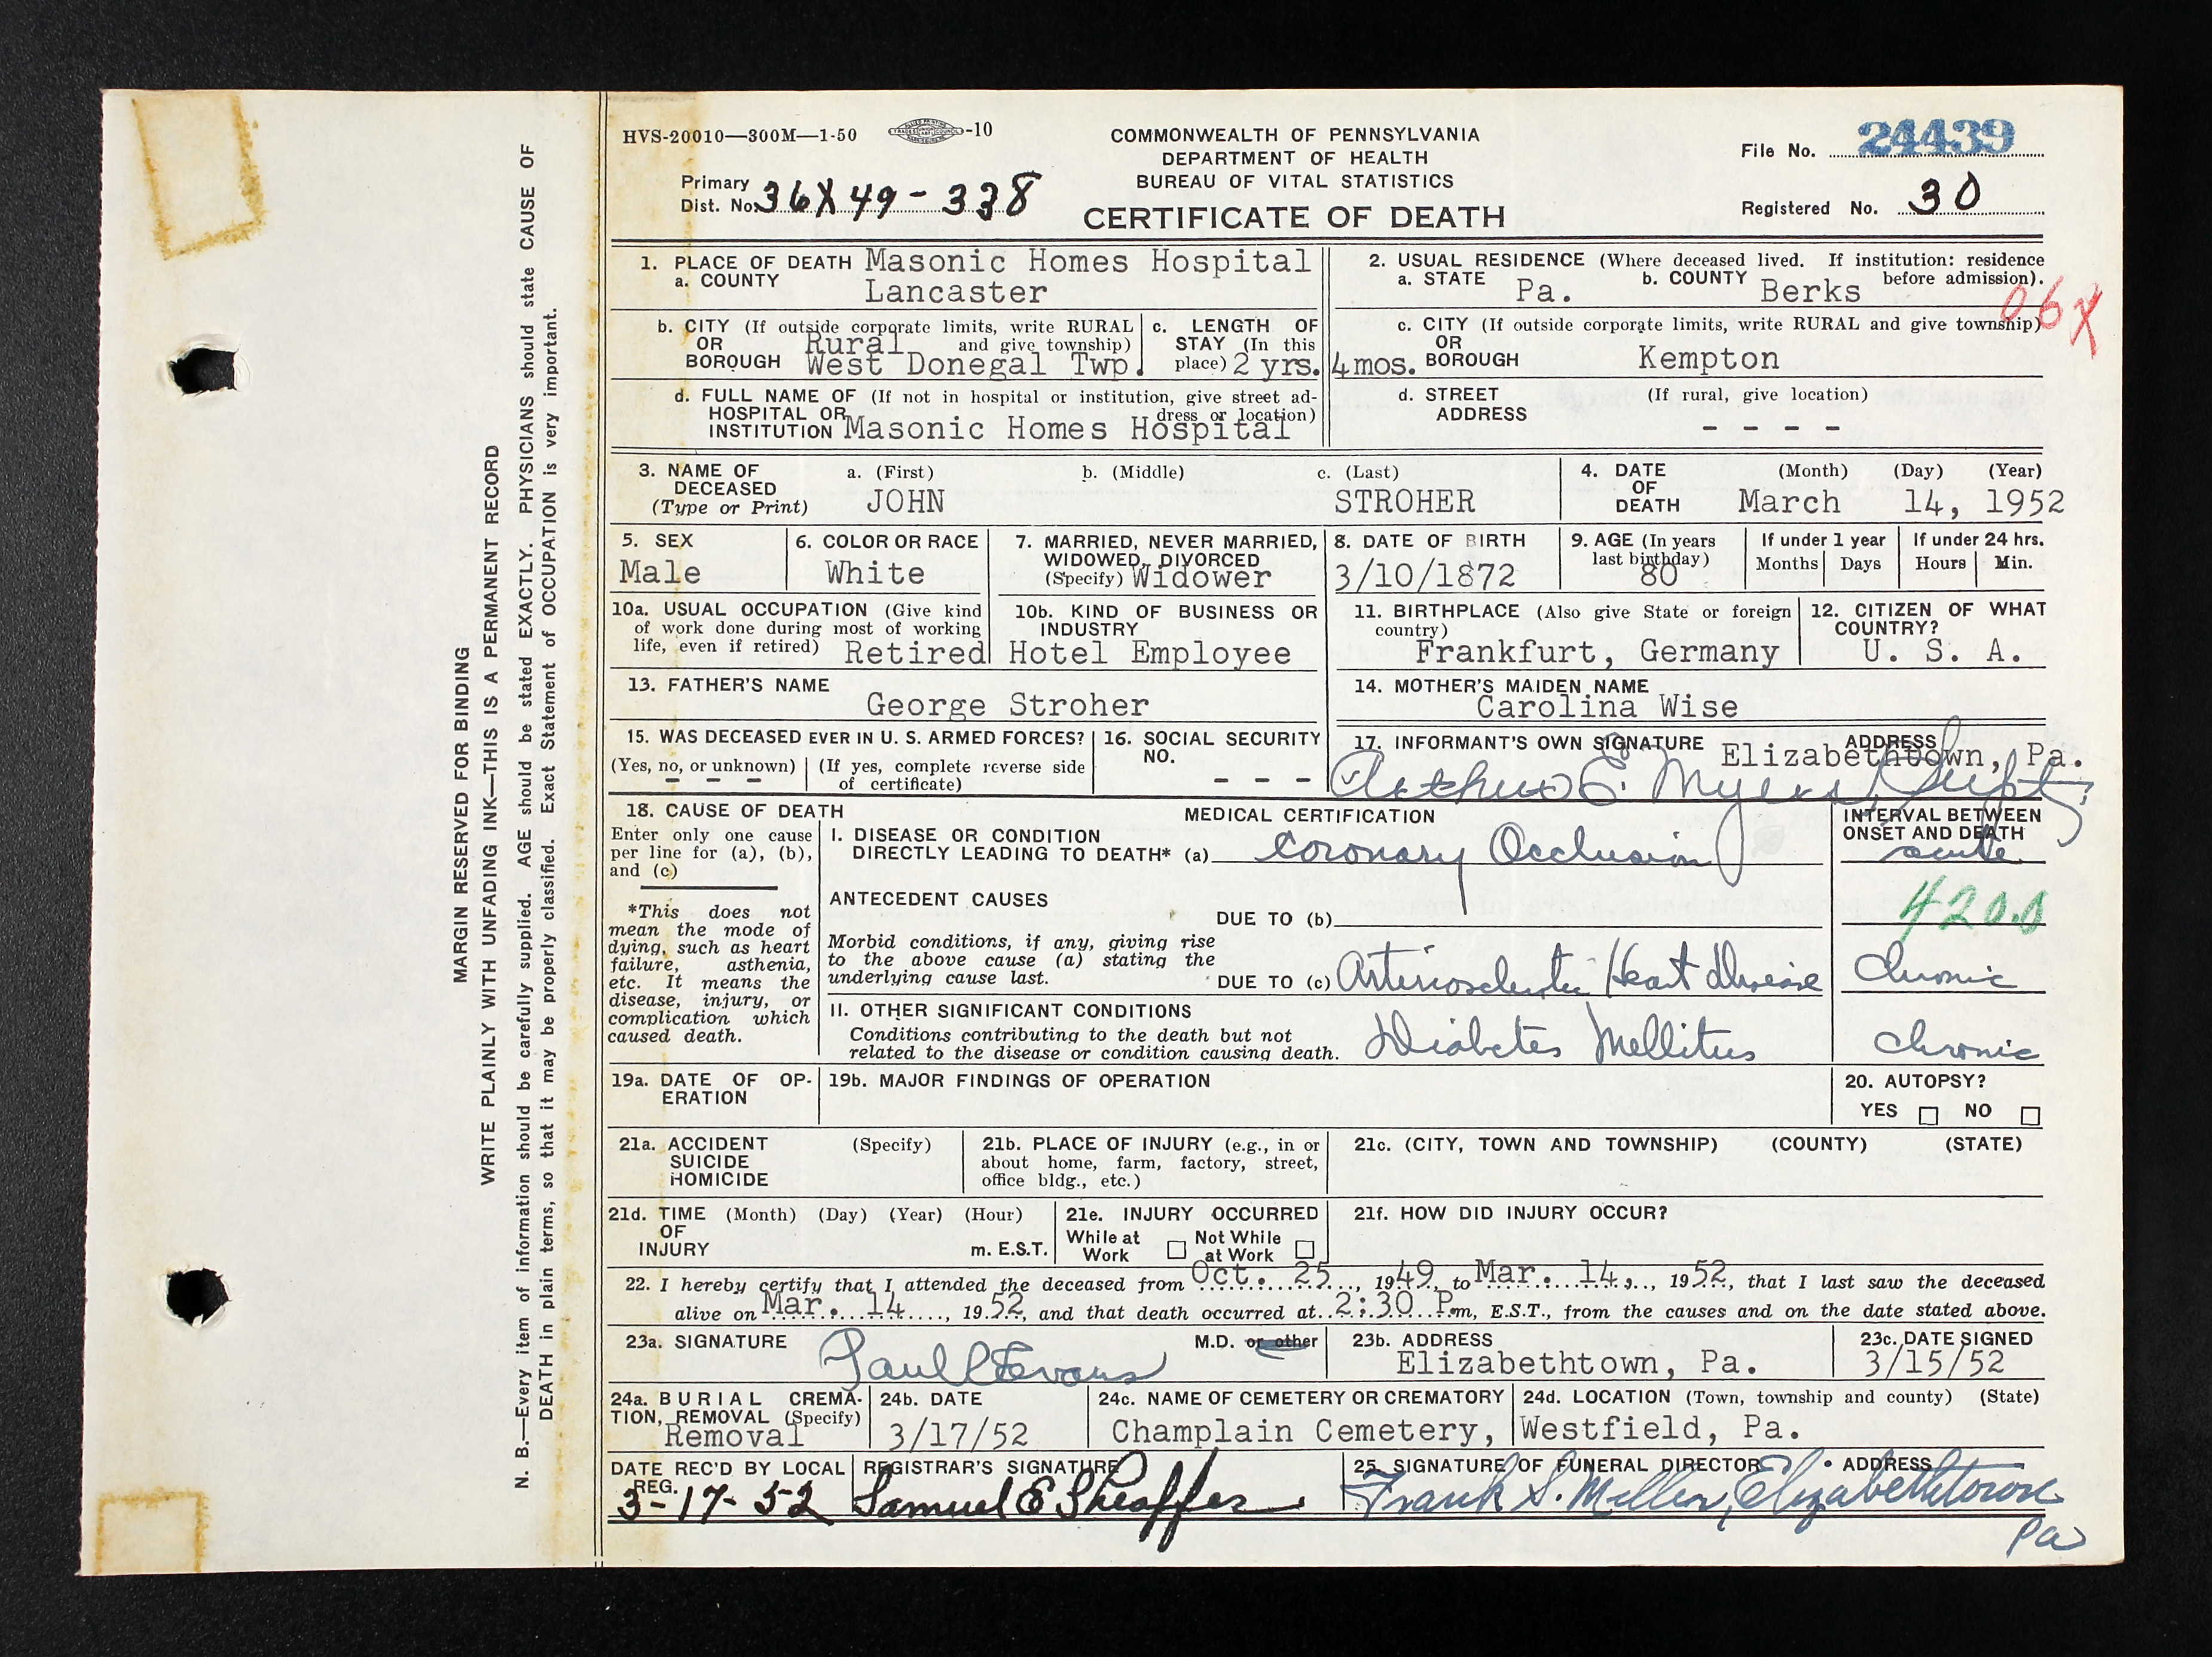 HVS-20010—300M—1-50 -10
COMMONWEALTH OF PENNSYLVANIA
DEPARTMENT OF HEALTH
BUREAU OF VITAL STATISTICS
CERTIFICATE OF DEATH
Primary Dist. No. 36X49-338
File No. 24439
Registered No. 30
1. PLACE OF DEATH Masonic Homes Hospital
a. COUNTY Lancaster
2. USUAL RESIDENCE (Where deceased lived. If institution: residence before admission).
a. STATE Pa. b. COUNTY Berks
06X
b. CITY (If outside corporate limits, write RURAL and give township)
OR BOROUGH Rural West Donegal Twp.
c. LENGTH OF STAY (In this place) 2 yrs. 4mos.
c. CITY (If outside corporate limits, write RURAL and give township)
OR BOROUGH Kempton
d. FULL NAME OF (If not in hospital or institution, give street address or location)
HOSPITAL OR INSTITUTION Masonic Homes Hospital
d. STREET ADDRESS (If rural, give location)
- - - -
3. NAME OF DECEASED (Type or Print)
a. (First) b. (Middle) c. (Last)
JOHN STROHER
4. DATE OF DEATH (Month) (Day) (Year)
March 14, 1952
5. SEX
Male
6. COLOR OR RACE
White
7. MARRIED, NEVER MARRIED, WIDOWED, DIVORCED (Specify) Widower
8. DATE OF BIRTH
3/10/1872
9. AGE (In years last birthday)
80
If under 1 year
Months Days
If under 24 hrs.
Hours Min.
10a. USUAL OCCUPATION (Give kind of work done during most of working life, even if retired) Retired
10b. KIND OF BUSINESS OR INDUSTRY
Hotel Employee
11. BIRTHPLACE (Also give State or foreign country)
Frankfurt, Germany
12. CITIZEN OF WHAT COUNTRY?
U. S. A.
13. FATHER'S NAME
George Stroher
14. MOTHER'S MAIDEN NAME
Carolina Wise
15. WAS DECEASED EVER IN U. S. ARMED FORCES?
(Yes, no, or unknown) (If yes, complete reverse side of certificate)
- - -
16. SOCIAL SECURITY NO.
- - -
17. INFORMANT'S OWN SIGNATURE ADDRESS
Elizabethtown, Pa.
Arthur E. Myers, Supt.
18. CAUSE OF DEATH
Enter only one cause per line for (a), (b), and (c)
*This does not mean the mode of dying, such as heart failure, asthenia, etc. It means the disease, injury, or complication which caused death.
MEDICAL CERTIFICATION
INTERVAL BETWEEN ONSET AND DEATH
I. DISEASE OR CONDITION
DIRECTLY LEADING TO DEATH* (a) Coronary Occlusion
acute
ANTECEDENT CAUSES
DUE TO (b)
420.0
Morbid conditions, if any, giving rise to the above cause (a) stating the underlying cause last.
DUE TO (c) Arteriosclerotic Heart disease
Chronic
II. OTHER SIGNIFICANT CONDITIONS
Conditions contributing to the death but not related to the disease or condition causing death.
Diabetes Mellitus
Chronic
19a. DATE OF OPERATION
19b. MAJOR FINDINGS OF OPERATION
20. AUTOPSY?
YES NO
21a. ACCIDENT SUICIDE HOMICIDE (Specify)
21b. PLACE OF INJURY (e.g., in or about home, farm, factory, street, office bldg., etc.)
21c. (CITY, TOWN AND TOWNSHIP) (COUNTY) (STATE)
21d. TIME OF INJURY (Month) (Day) (Year) (Hour)
m. E.S.T.
21e. INJURY OCCURRED
While at Work Not While at Work
21f. HOW DID INJURY OCCUR?
22. I hereby certify that I attended the deceased from Oct. 25, 1949, to Mar. 14, 1952, that I last saw the deceased
alive on Mar. 14, 1952, and that death occurred at 2:30 P.m, E.S.T., from the causes and on the date stated above.
23a. SIGNATURE M.D. or other
Paul C Evans
23b. ADDRESS
Elizabethtown, Pa.
23c. DATE SIGNED
3/15/52
24a. BURIAL CREMATION, REMOVAL (Specify)
Removal
24b. DATE
3/17/52
24c. NAME OF CEMETERY OR CREMATORY
Champlain Cemetery,
24d. LOCATION (Town, township and county) (State)
Westfield, Pa.
DATE REC'D BY LOCAL REG.
3-17-52
REGISTRAR'S SIGNATURE
Samuel E Sheaffer
25. SIGNATURE OF FUNERAL DIRECTOR ADDRESS
Frank S. Miller, Elizabethtown
Pa
MARGIN RESERVED FOR BINDING
WRITE PLAINLY WITH UNFADING INK—THIS IS A PERMANENT RECORD
N. B.—Every item of information should be carefully supplied. AGE should be stated EXACTLY. PHYSICIANS should state CAUSE OF
DEATH in plain terms, so that it may be properly classified. Exact Statement of OCCUPATION is very important.